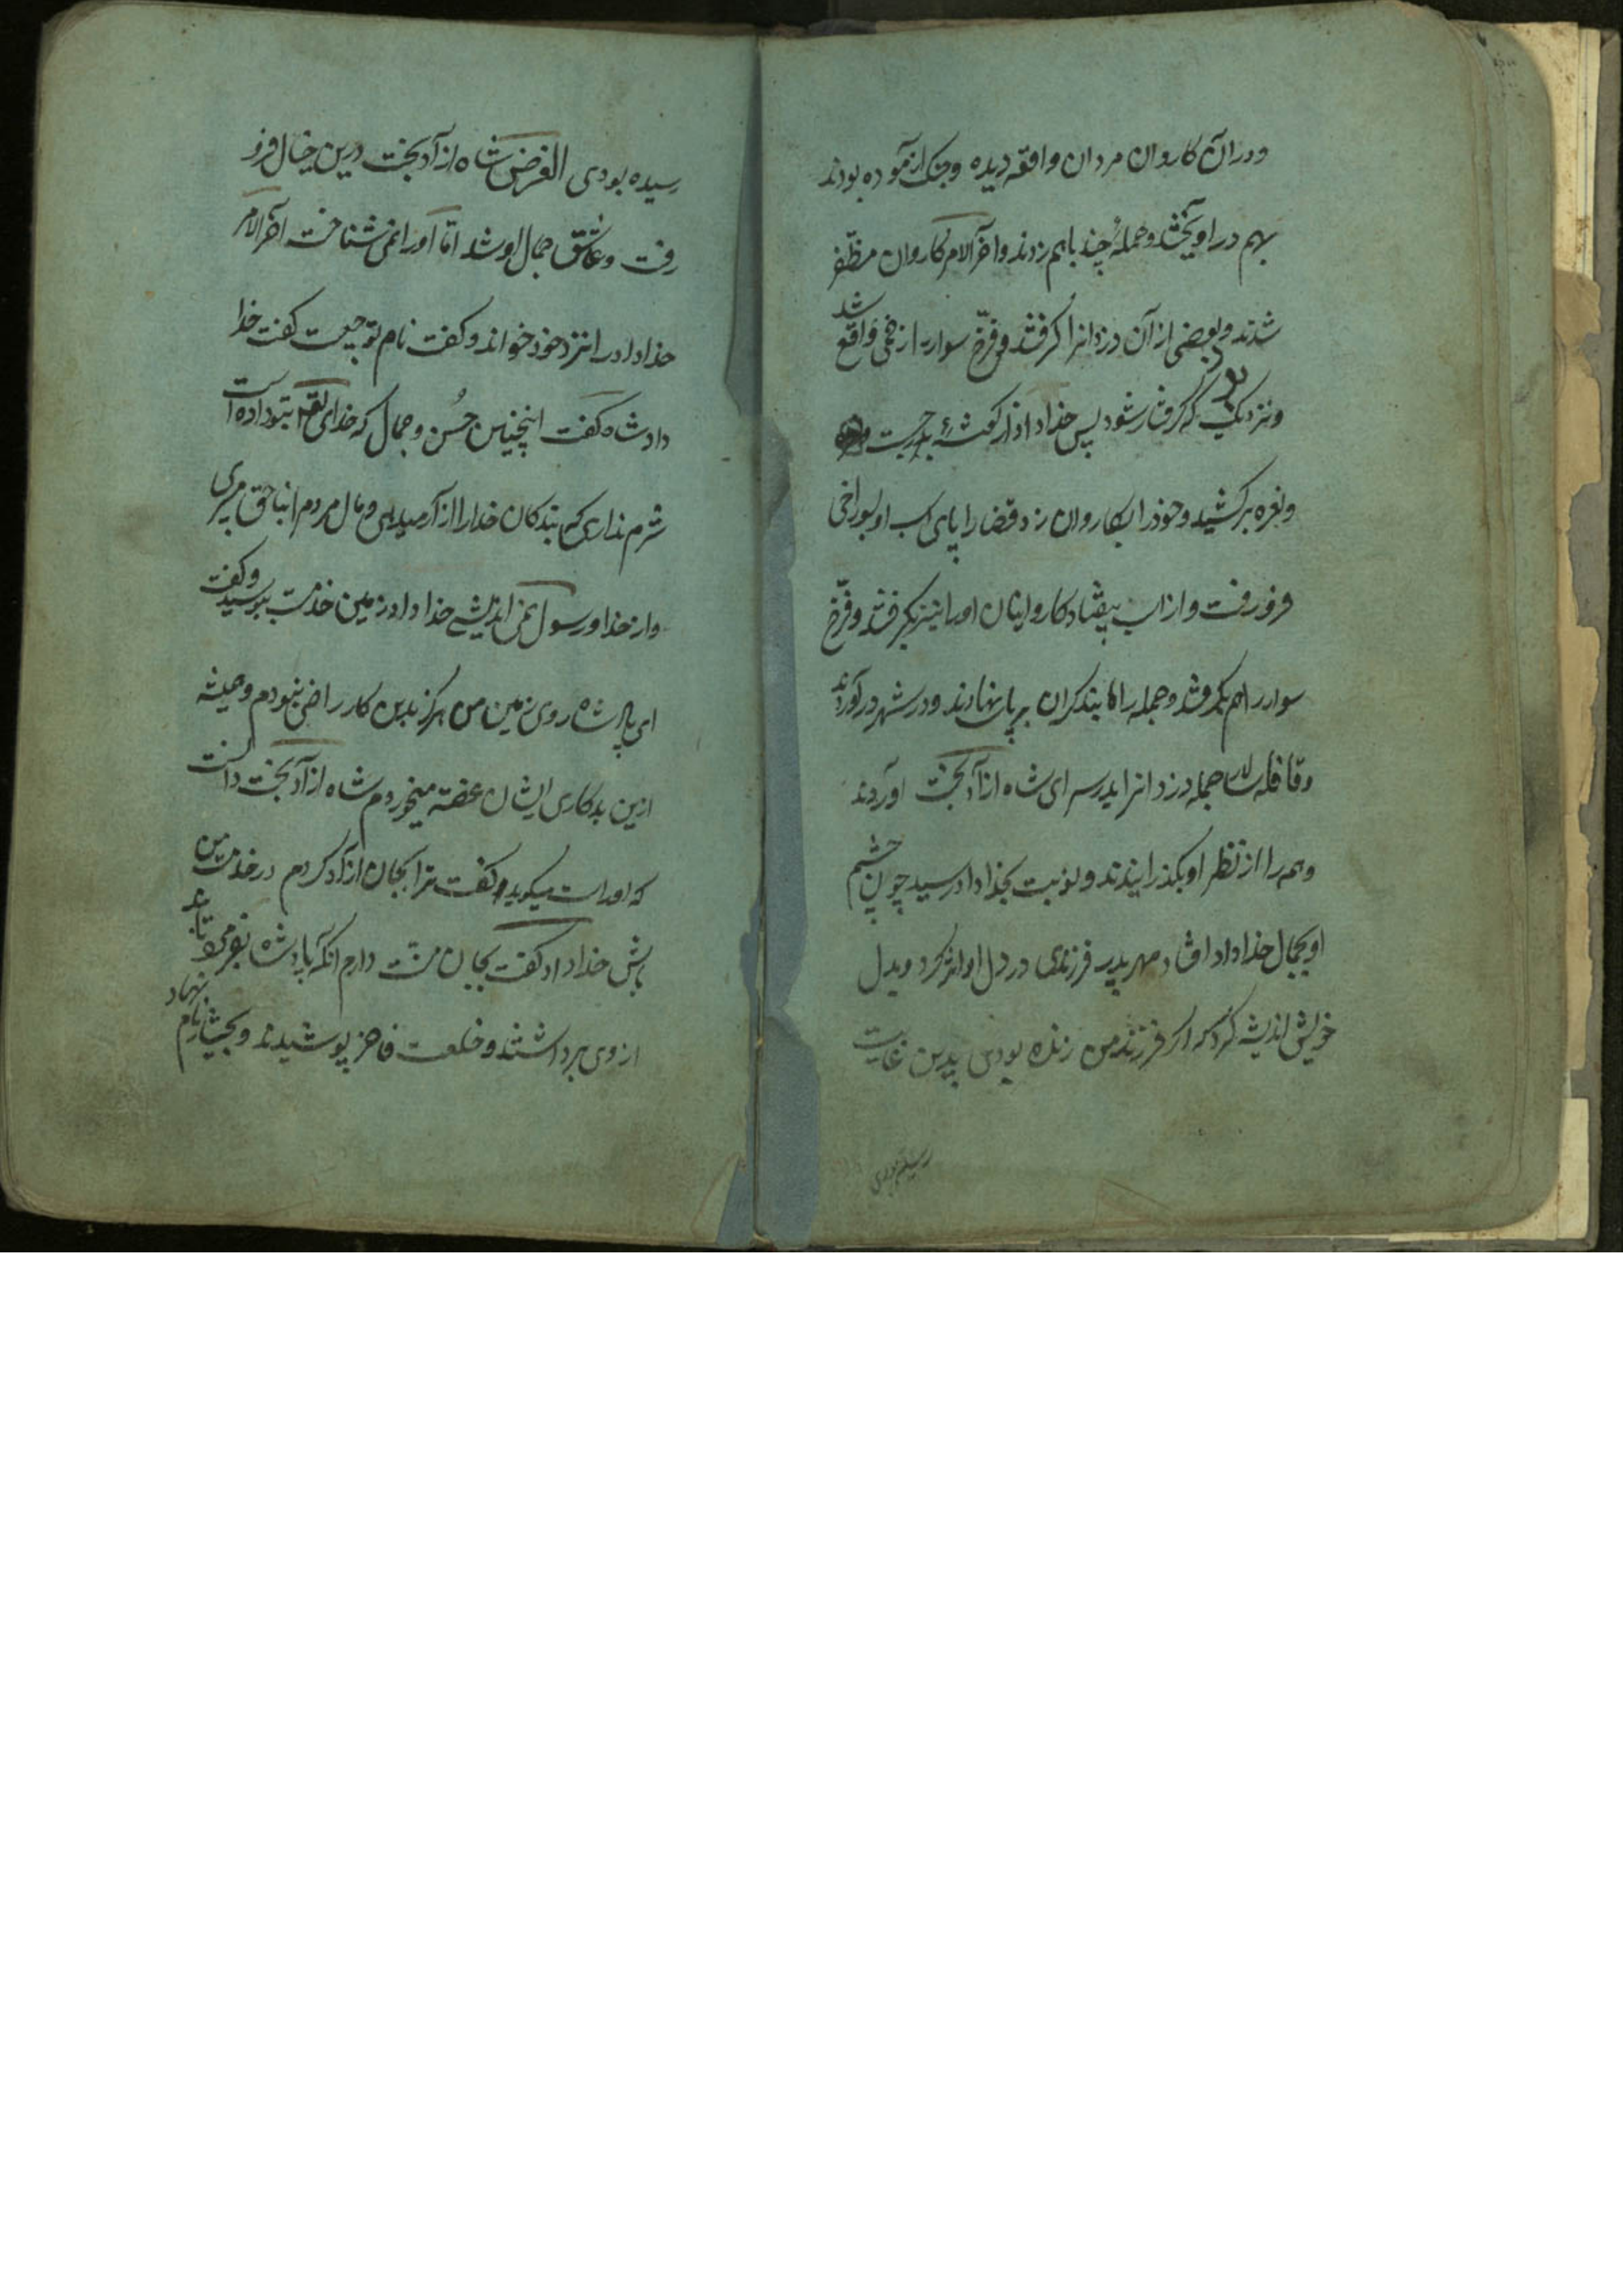 ودران کاروان مردان واقعه دیده وجنک ازموده بودند
بهم دراویختند وحملهٔ چند باهم زدند واخرالامر کاروان مظفّر
شدند وبعضی ازان دزدانرا کرفتند وفرّخ سوار را زخمی واقع شد
ونزدیک که کرفتار شود پس خداداد از کوشهٔ بدر جست
ونعره برکشید وخودرا بکاروان زد قضارا پای اسب او بسوراخی
فرو رفت واز اسب بیفتاد کاروانیان اورا نیز بکرفتند وفرّخ
سوار را هم بکرفتند وجمله را بند کران بر پای نهادند ودر شهر در آوردند
وقافله جمله دزدانرا بدر سرای شاه ازادبخت آوردند
وهمه را از نظر او بکذرانیدند ونوبت بخداداد رسید چون چشم
او بجمال خداداد افتاد مهر پدر فرزندی در دل او اثر کرد وبدل
خویش اندیشه کرد که اکر فرزند من زنده بودی بدین غایت
رسیده بودی
رسیده بودی الغرض شاه ازادبخت درین خیال فرو
رفت وعاشق جمال او شد امّا اورا نمی شناخت اخرالامر
خداداد را نزد خود خواند وکفت نام تو چیست کفت خدا
داد شاه کفت اینچنین حُسن وجمال که خدای تعالی بتو داده است
شرم نداری که بندکان خدارا ازار میدهی ومال مردم بناحق میبری
واز خدا ورسول نمی اندیشی خداداد زمین خدمت ببوسید وکفت
ای پادشاه روی زمین من هرکز بدین کار راضی نبودم وهمیشه
ازین بدکاری ایشان غصّه میخوردم شاه ازادبخت دانست
که او راست میکوید وکفت ترا بجان ازاد کردم در خدمت من
باش خداداد کفت بجان منّت دارم انکه پادشاه بفرمود تا بند
از وی برداشتند وخلعت فاخر پوشیدند وبختیار نام نهاد